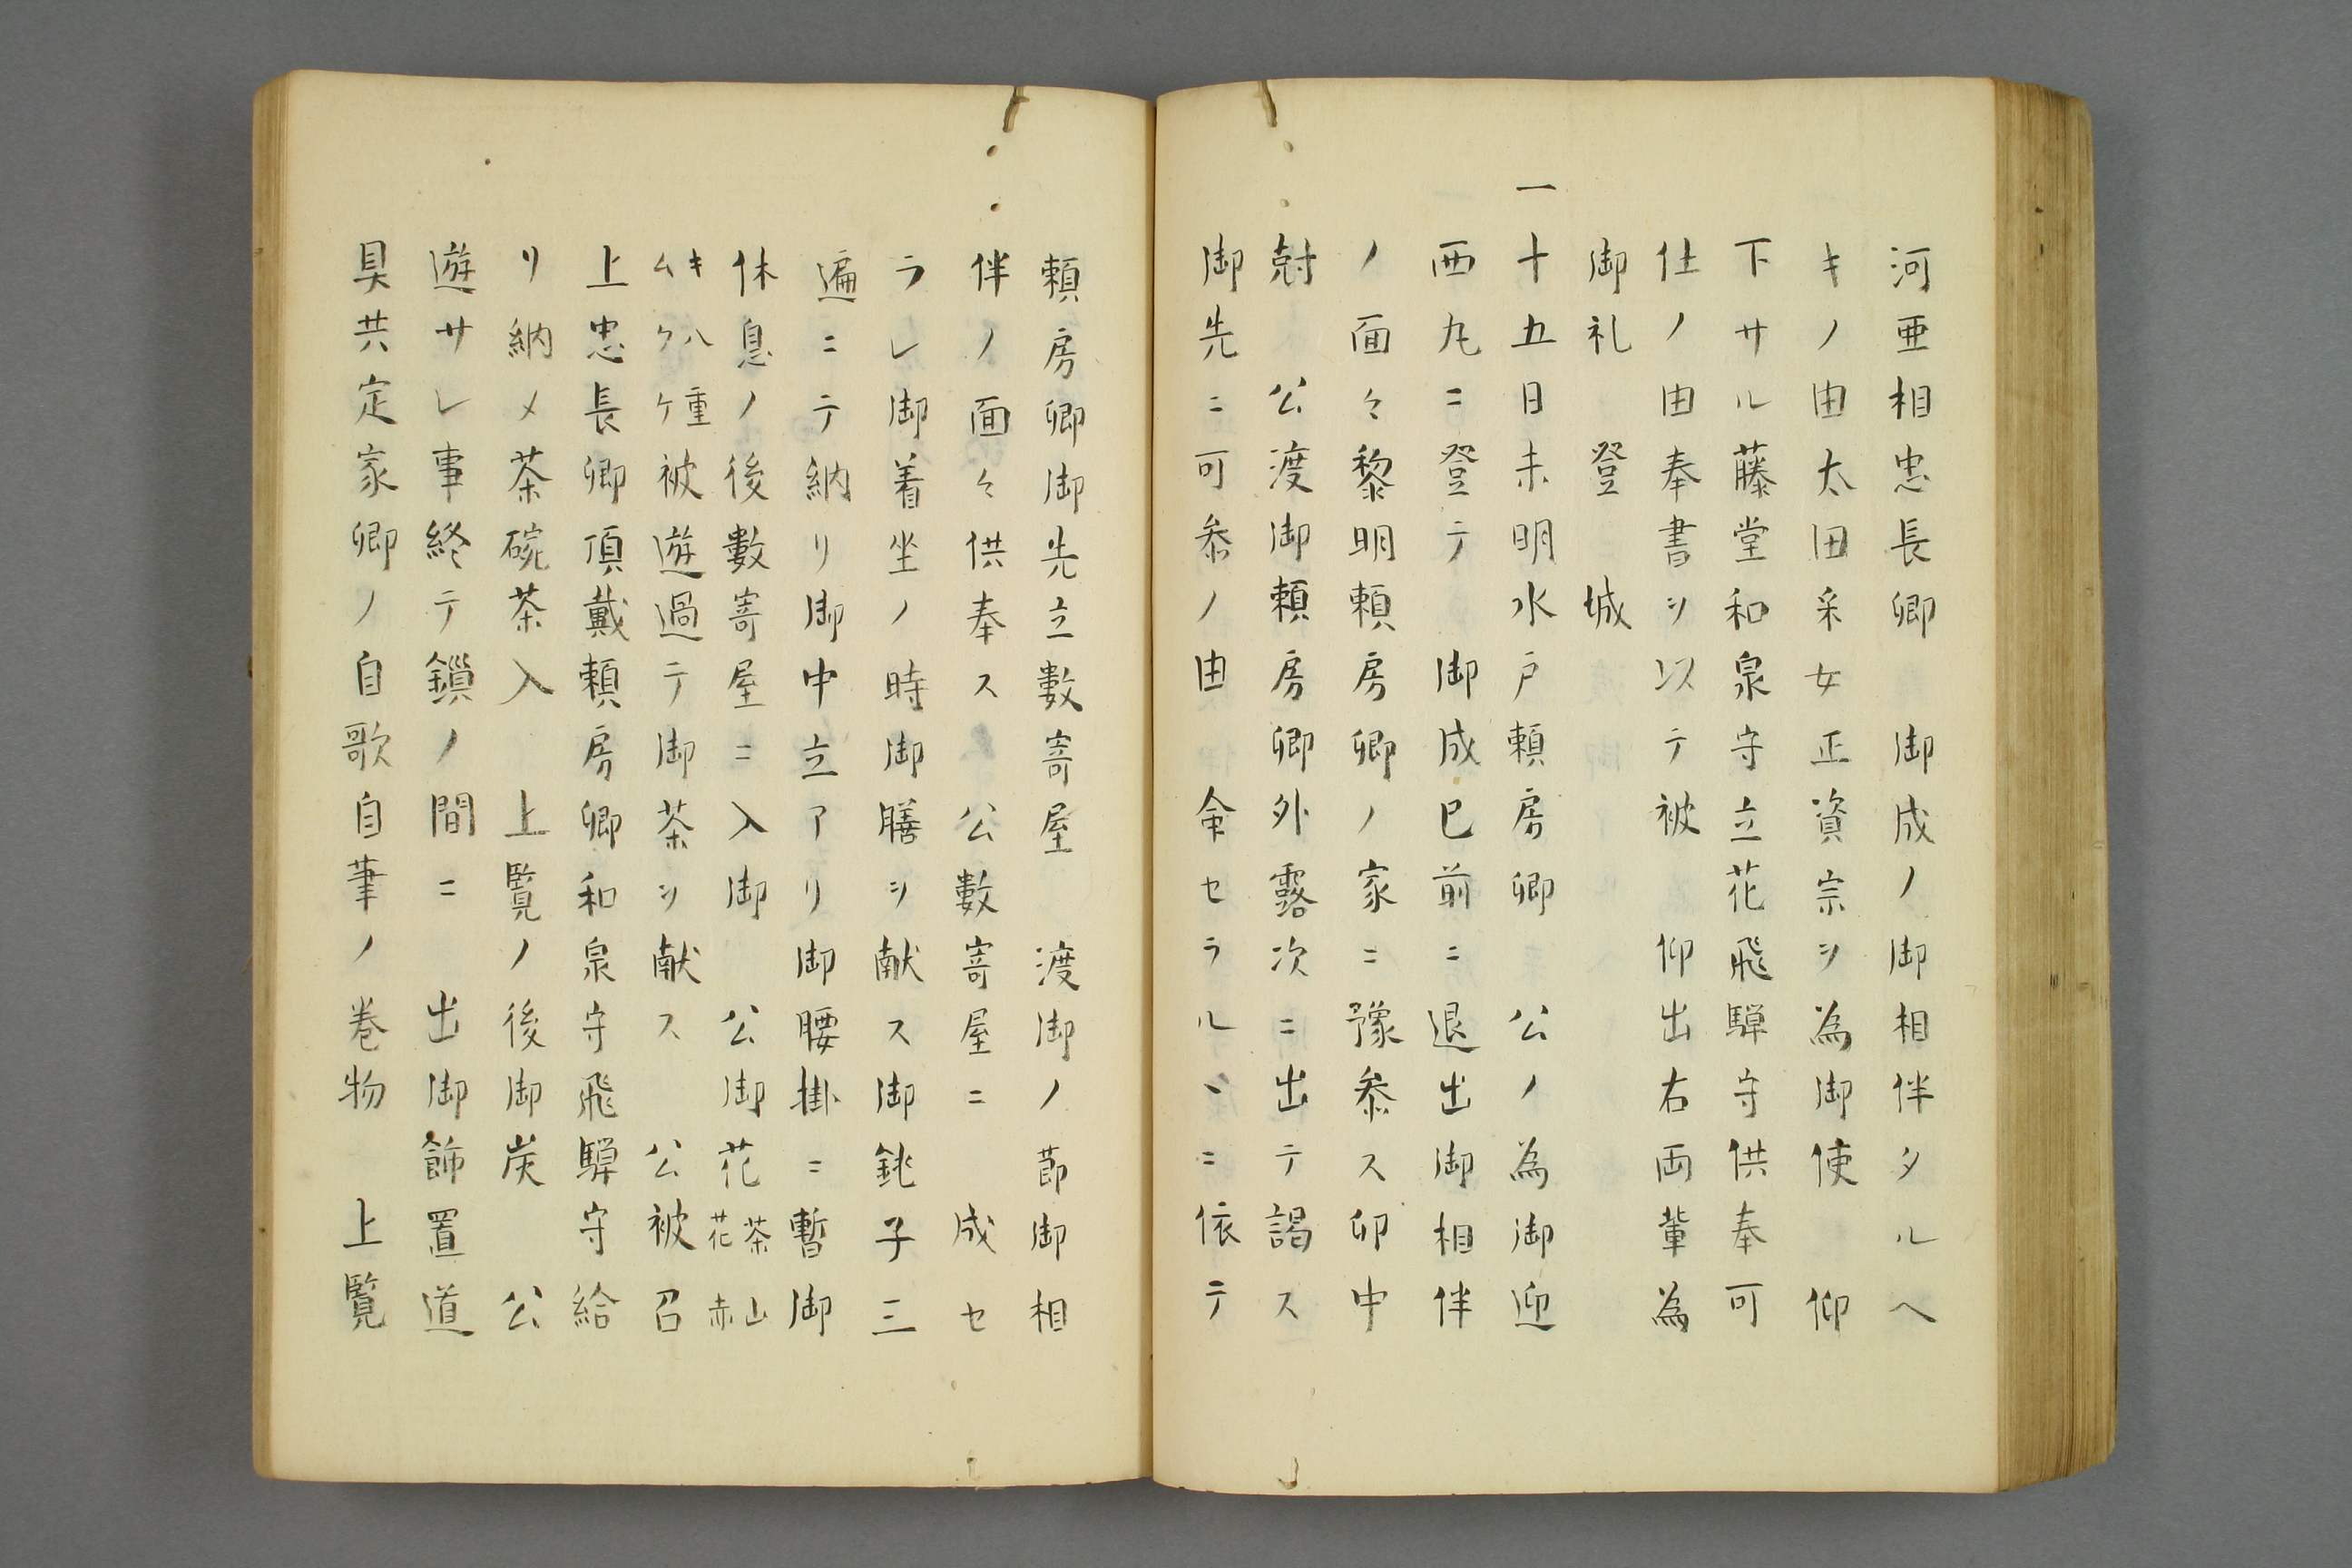 河亜相忠長卿　御成ノ御相伴タルヘ
キノ由太田采女正資宗ヲ為御使　仰
下サル藤堂和泉守立花飛騨守供奉可
仕ノ由奉書ヲ以テ被　仰出右両輩為
御礼　登　城
一十五日未明水戸頼房卿　公ノ為御迎
西丸ニ登テ　御成巳前ニ退出御相伴
ノ面々黎明頼房卿ノ家ニ豫参ス卯中
尅　公渡御頼房卿外露次ニ出テ謁ス
御先ニ可参ノ由　命セラルヽニ依テ
頼房卿御先立數寄屋　渡御ノ節御相
伴ノ面々供奉ス　公數寄屋ニ　成セ
ラレ御着坐ノ時御膳ヲ献ス御銚子三
遍ニテ納リ御中立アリ御腰掛ニ暫御
休息ノ後數寄屋ニ入御　公御花茶山花赤
キハ重ムクケ被遊過テ御茶ヲ献ス　公被召
上忠長卿頂戴頼房卿和泉守飛騨守給
リ納メ茶碗茶入　上覧ノ後御炭　公
遊サレ事終テ鎖ノ間ニ　出御餝置道
具共定家卿ノ自歌自筆ノ巻物　上覧